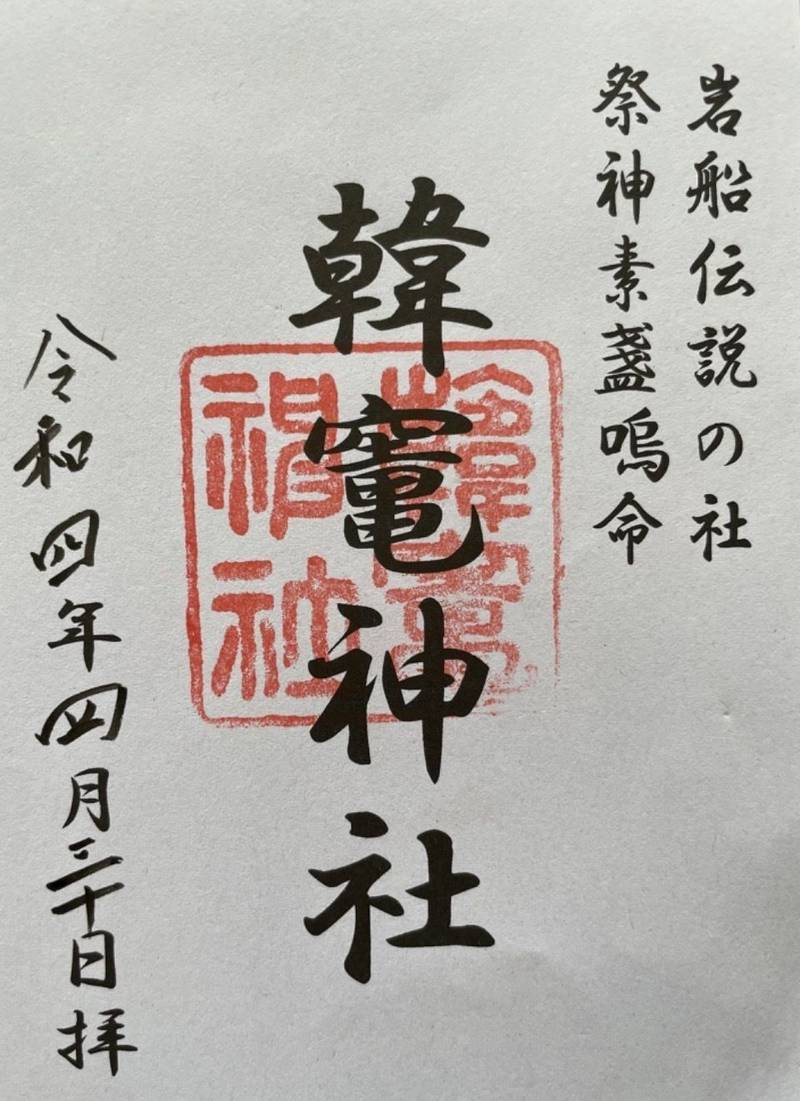 岩船伝説の社
祭神素盞嗚命
韓竈神社
令和四年四月三十日拝